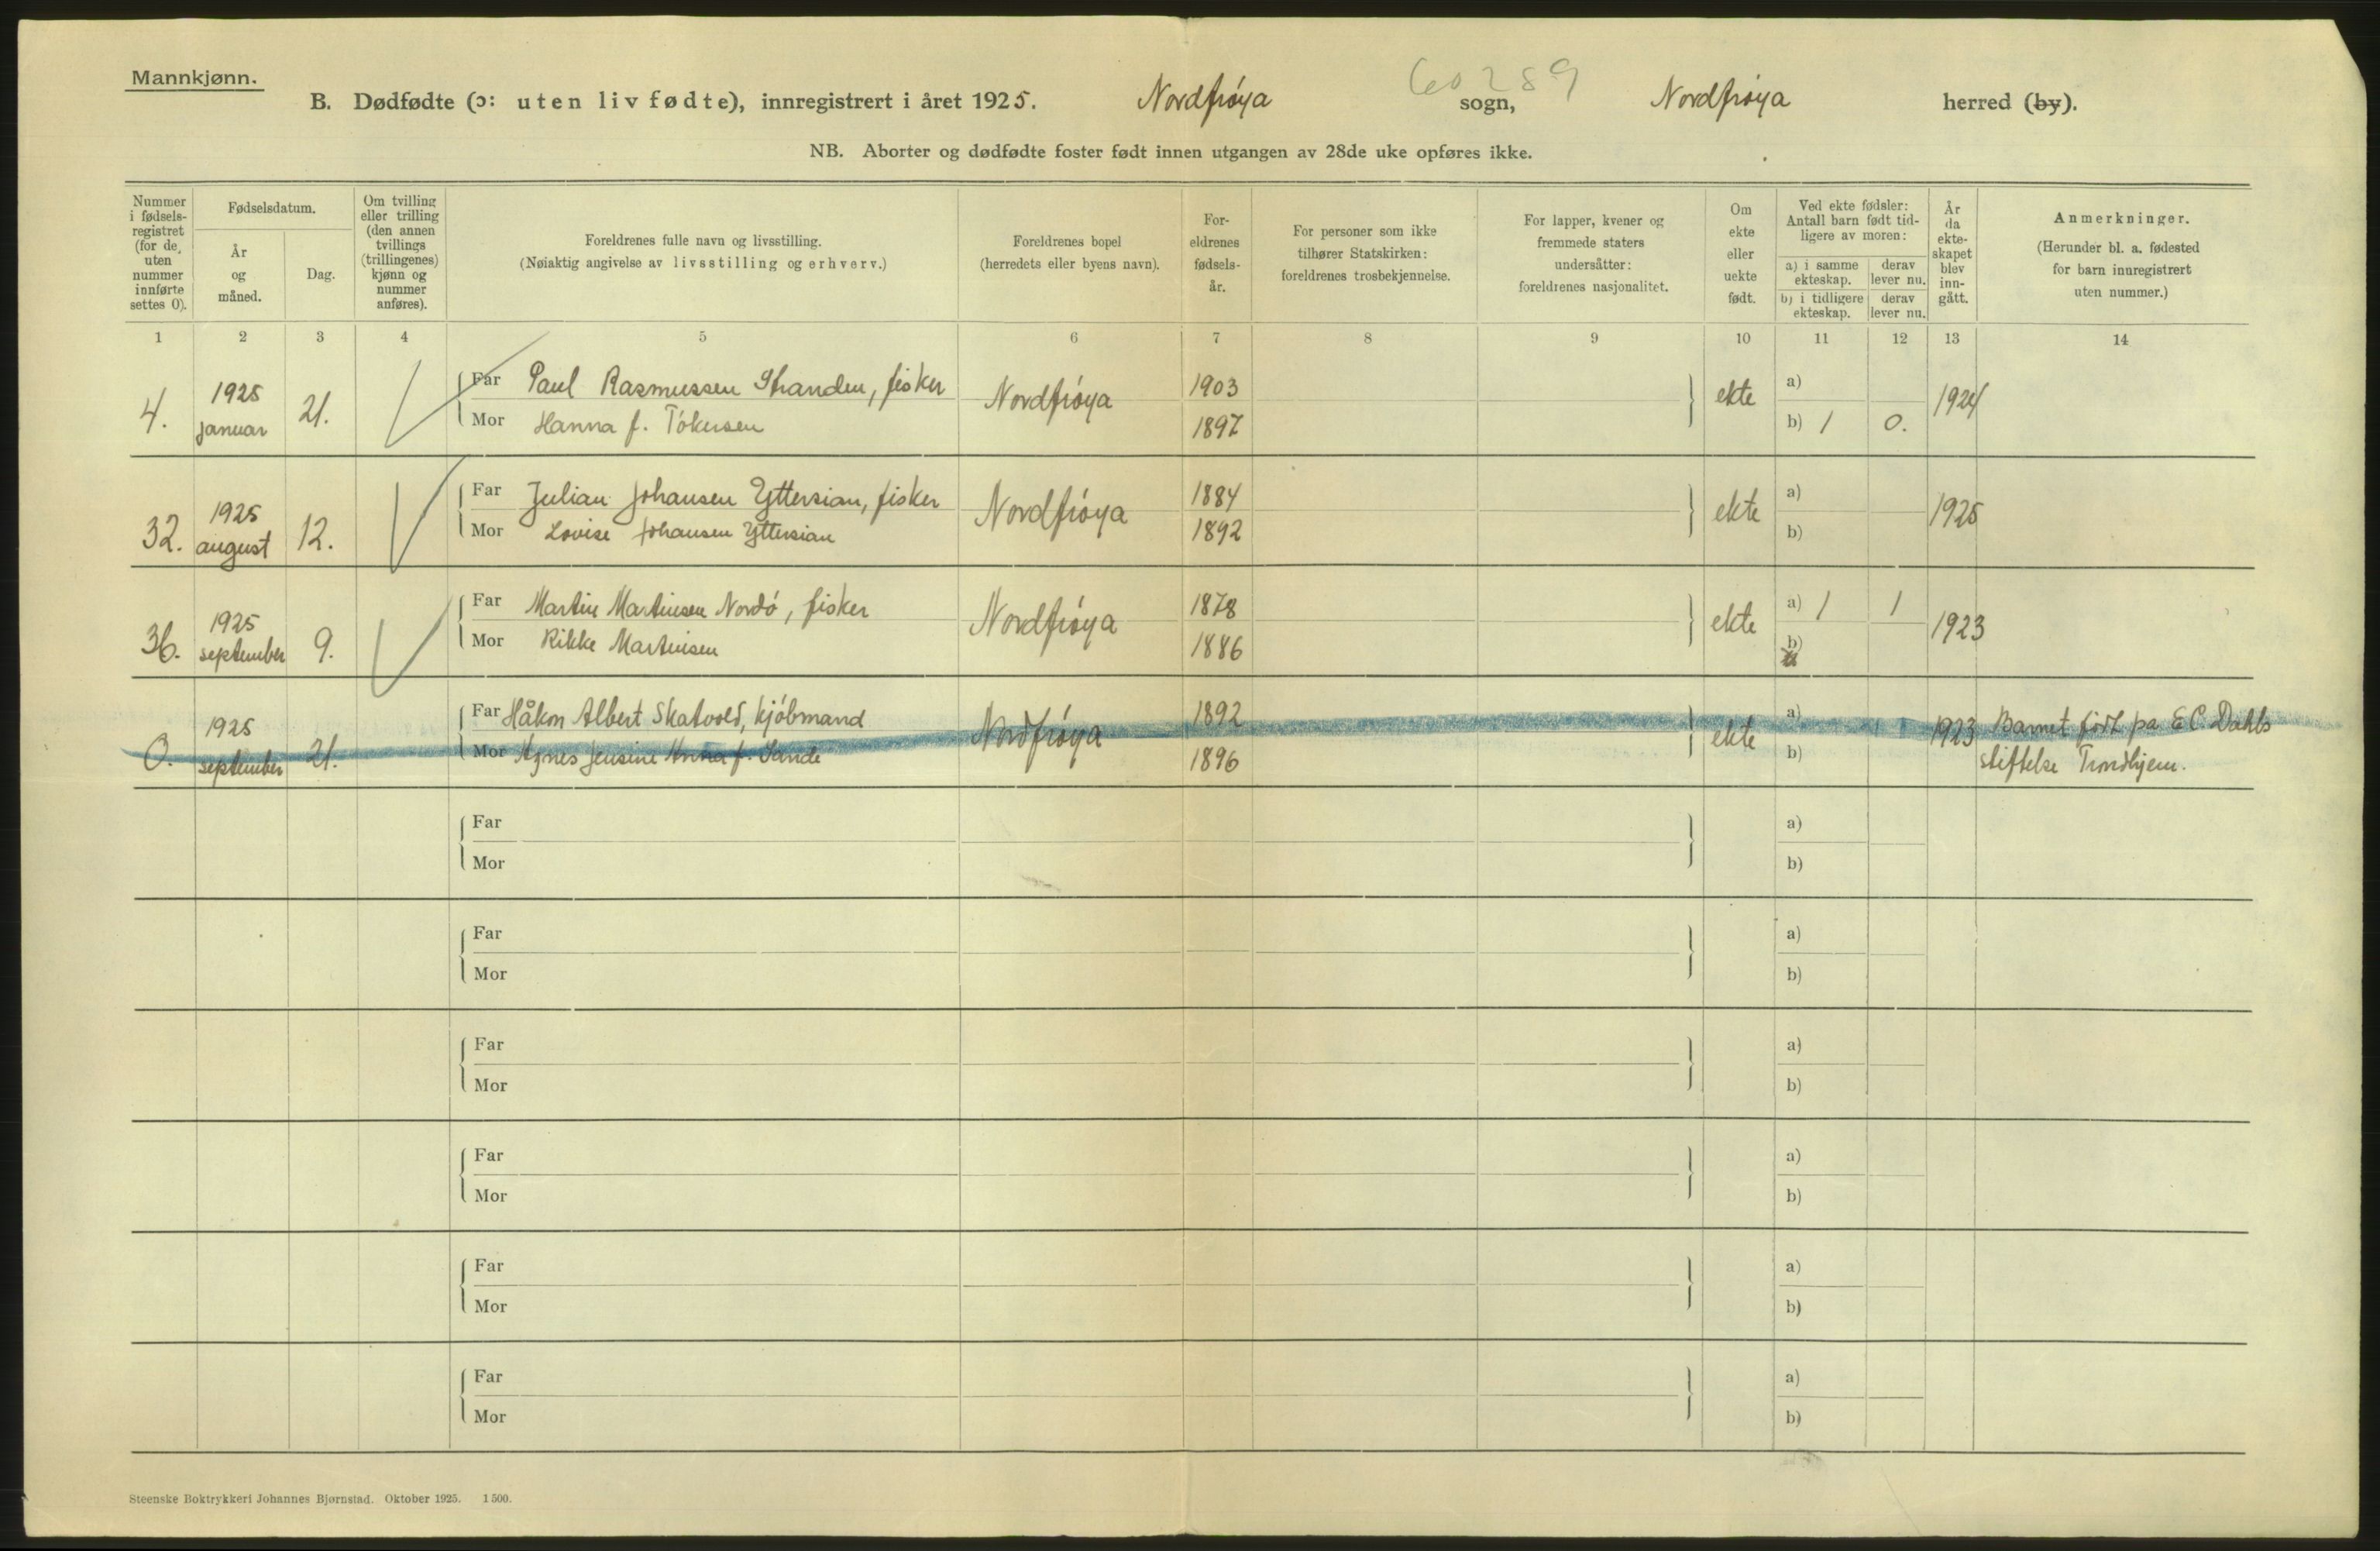 Mannkjønn.
60289
B. Dødfødte (ɔ: uten liv fødte), innregistrert i året 1925. Nordfrøya sogn, Nordfrøya herred (by).
NB. Aborter og dødfødte foster født innen utgangen av 28de uke opføres ikke.
Nummer i fødselsregistret (for de uten nummer innførte settes 0).
Fødselsdatum.
År og måned.
Dag.
Om tvilling eller trilling (den annen tvillings (trillingenes) kjønn og nummer anføres).
Foreldrenes fulle navn og livsstilling.
(Nøiaktig angivelse av livsstilling og erhverv.)
Foreldrenes bopel
(herredets eller byens navn).
For-
eldrenes
fødsels-
år.
For personer som ikke
tilhører Statskirken:
foreldrenes trosbekjennelse.
For lapper, kvener og
fremmede staters
undersåtter:
foreldrenes nasjonalitet.
Om
ekte
eller
uekte
født.
Ved ekte fødsler:
Antall barn født tid-
ligere av moren:
a) i samme ekteskap.
derav lever nu.
b) i tidligere ekteskap.
derav lever nu.
År
da
ekte-
skapet
blev
inn-
gått.
Anmerkninger.
(Herunder bl. a. fødested
for barn innregistrert
uten nummer.)
1 2 3 4 5 6 7 8 9 10 11 12 13 14
4. 1925 januar 21. Far Paul Rasmussen Stranden, fisker Nordfrøya 1903 ekte a) 1924
Mor Hanna f. Tökersen 1897 b) 1 0.
32. 1925 august 12. Far Julian Johansen Yttersian, fisker Nordfrøya 1884 ekte a) 1925
Mor Lovise Johansen Yttersian 1892 b)
36. 1925 september 9. Far Martin Martinsen Nordö, fisker Nordfrøya 1878 ekte a) 1 1 1923
Mor Rikke Martinsen 1886 b)
0. 1925 september 21. Far Håkon Albert Skatvold, kjöbmand Nordfrøya 1892 ekte a) 1923 Barnet født på E.C. Dahls
Mor Agnes Jensine Anna f. Sande 1896 b) stiftelse Trondhjem.
Far a)
Mor b)
Far a)
Mor b)
Far a)
Mor b)
Far a)
Mor b)
Far a)
Mor b)
Far a)
Mor b)
Steenske Boktrykkeri Johannes Bjørnstad. Oktober 1925. 1500.